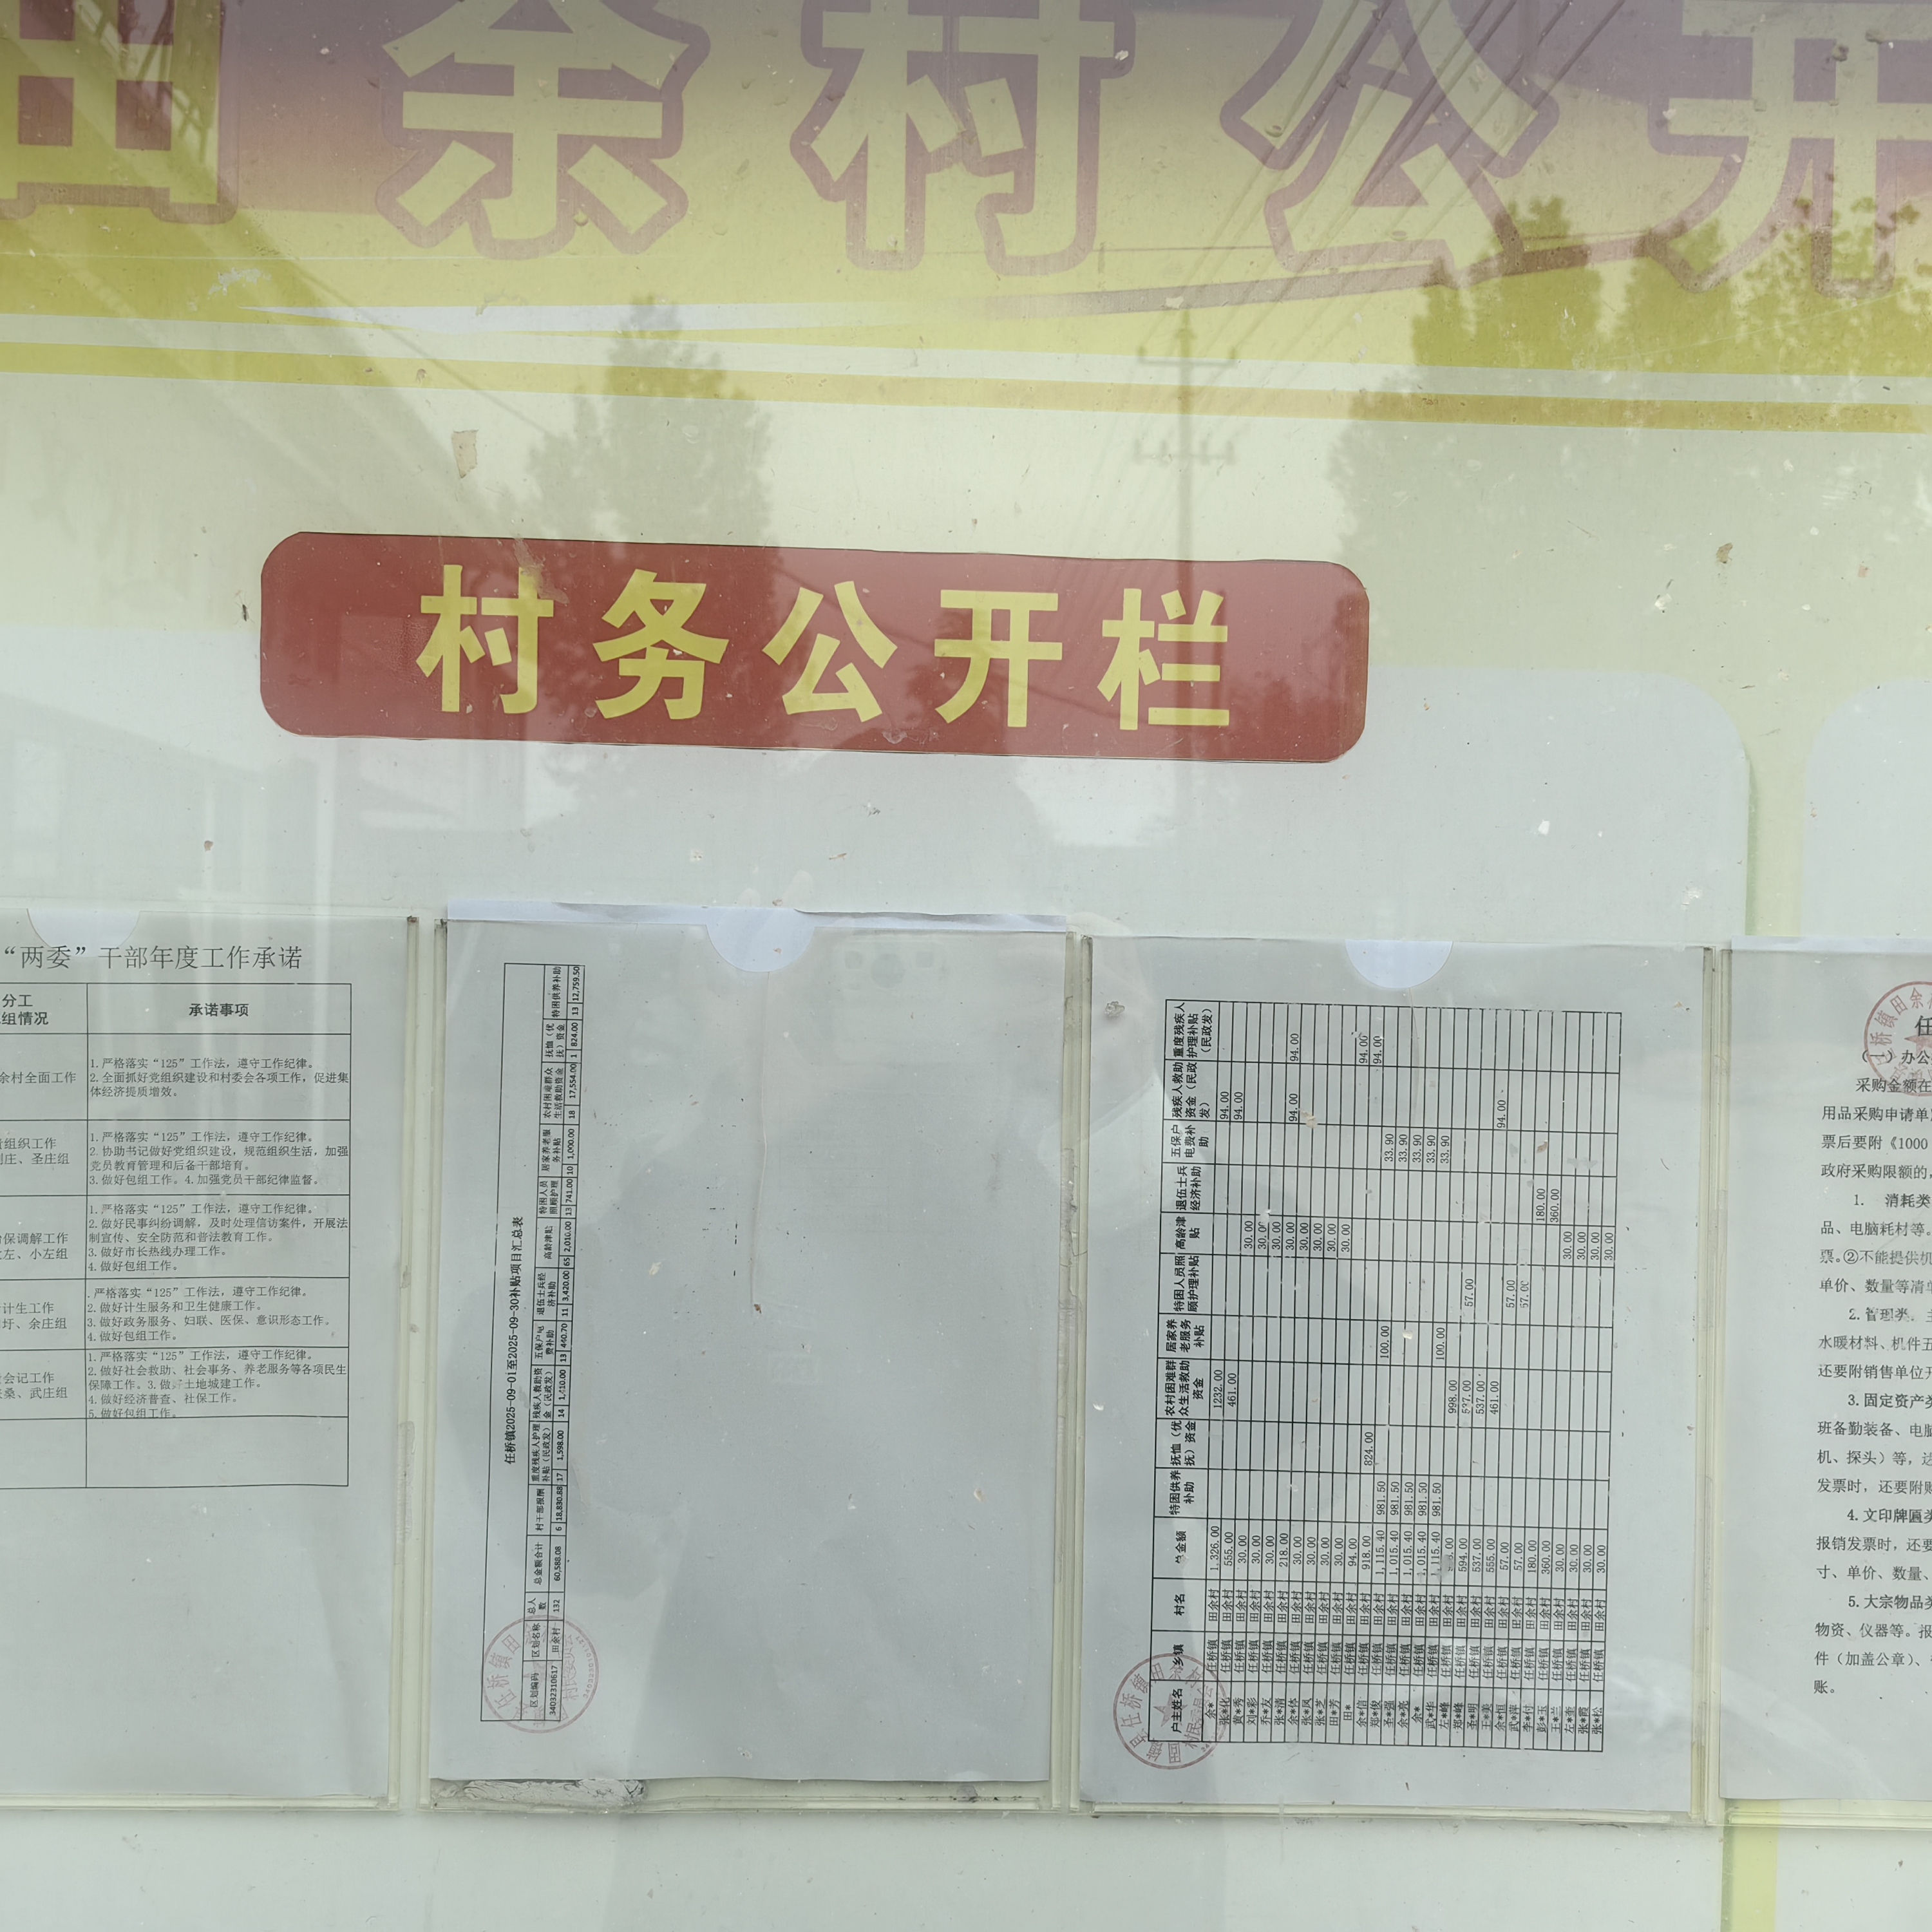 田余村公开
村务公开栏
“两委”干部年度工作承诺
分工
组情况
承诺事项
余村全面工作
1.严格落实“125”工作法，遵守工作纪律。
2.全面抓好党组织建设和村委会各项工作，促进集
体经济提质增效。
组织工作
庄、圣庄组
1.严格落实“125”工作法，遵守工作纪律。
2.协助书记做好党组织建设，规范组织生活，加强
党员教育管理和后备干部培育。
3.做好包组工作。4.加强党员干部纪律监督。
保调解工作
左、小左组
1.严格落实“125”工作法，遵守工作纪律。
2.做好民事纠纷调解，及时处理信访案件，开展法
制宣传、安全防范和普法教育工作。
3.做好市长热线办理工作。
4.做好包组工作。
计生工作
圩、余庄组
.严格落实“125”工作法，遵守工作纪律。
2.做好计生服务和卫生健康工作。
3.做好政务服务、妇联、医保、意识形态工作。
4.做好包组工作。
会记工作
桑、武庄组
1.严格落实“125”工作法，遵守工作纪律。
2.做好社会救助、社会事务、养老服务等各项民生
保障工作。3.做好土地城建工作。
4.做好经济普查、社保工作。
5.做好包组工作。
任桥镇2025-09-01至2025-09-30补贴项目汇总表
区划编码 区划名称 总人数 总金额合计 村干部报酬 重度残疾人护理补贴（民政发） 残疾人救助资金（民政发） 五保户电费补助 退伍士兵经济补助 高龄津贴 特困人员照顾护理 居家养老服务补贴 农村困难群众生活救助资金 抚恤（优抚）资金 特困供养补助
34032310617 田余村 132 60,588.08 6 18,830.88 17 1,598.00 14 13 440.70 11 3,420.00 65 2,010.00 13 741.00 10 1,000.00 18 17,554.00 1 824.00 13 12,759.50
户主姓名 乡镇 村名 总金额 特困供养补助 抚恤（优抚）资金 农村困难群众生活救助资金 居家养老服务补贴 特困人员照顾护理补贴 高龄津贴 退伍士兵经济补助 五保户电费补助 残疾人救助资金（民政发） 重度残疾人护理补贴（民政发）
余* 任桥镇 田余村 1,326.00 1232.00 94.00
张*化 任桥镇 田余村 555.00 461.00 94.00
黄*秀 任桥镇 田余村 30.00 30.00
刘*彩 任桥镇 田余村 30.00 30.00
乔*友 任桥镇 田余村 30.00 30.00
张*清 任桥镇 田余村 218.00 30.00 94.00 94.00
余*体 任桥镇 田余村 30.00 30.00
张*凤 任桥镇 田余村 30.00 30.00
张*芝 任桥镇 田余村 30.00 30.00
田*芳 任桥镇 田余村 30.00 30.00
田* 任桥镇 田余村 94.00 94.00
余*信 任桥镇 田余村 918.00 824.00 94.00
郑*俊 任桥镇 田余村 1,115.40 981.50 100.00 33.90
圣*强 任桥镇 田余村 1,015.40 981.50 33.90
余*亮 任桥镇 田余村 1,015.40 981.50 33.90
余* 任桥镇 田余村 1,015.40 981.50 33.90
武*华 任桥镇 田余村 1,115.40 981.50 100.00 33.90
左*峰 任桥镇 田余村 998.00
郑*峰 任桥镇 田余村 594.00 537.00 57.00
圣*明 任桥镇 田余村 537.00 537.00
王*美 任桥镇 田余村 555.00 461.00 94.00
余*恒 任桥镇 田余村 57.00 57.00
武*萍 任桥镇 田余村 57.00 57.00
李*付 任桥镇 田余村 180.00 180.00
彭*玉 任桥镇 田余村 360.00 360.00
王*兰 任桥镇 田余村 30.00 30.00
左*奎 任桥镇 田余村 30.00 30.00
张*霞 任桥镇 田余村 30.00 30.00
张*松 任桥镇 田余村 30.00 30.00
任
（一）办公
采购金额在
用品采购申请单
票后要附《1000
政府采购限额的，
1. 消耗类
品、电脑耗材等。
票。②不能提供机
单价、数量等清单
2.管理类。
水暖材料、机件五
还要附销售单位开
3.固定资产类
班备勤装备、电脑
机、探头）等，
发票时，还要附购
4.文印牌匾类
报销发票时，还要
寸、单价、数量、
5.大宗物品类
物资、仪器等。报
件（加盖公章）、
账。